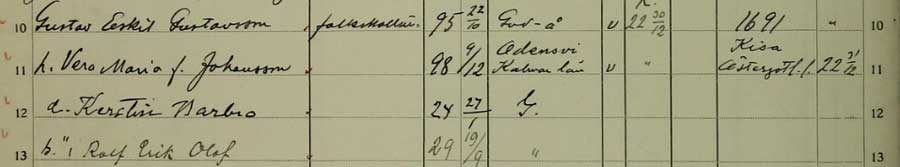 10 Gustav Eskil Gustavsson folkskollär. 95 22/10 Gud-å v 22 30/12 1691 " 10
11 h. Vera Maria f. Johansson 98 9/12 Odensvi Kalmar län v " Kisa Östergötl. l. 22 11
12 d. Kerstin Barbro 24 27/1 G. 12
13 s. " Rolf Erik Olof 29 19/9 " 13